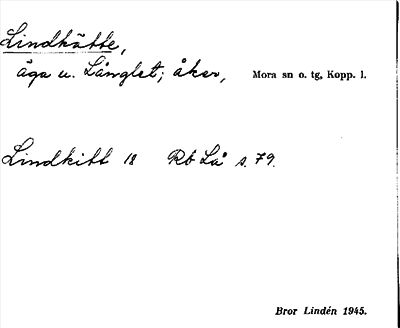 Lindkätte,
äga u. Långlet; åker, Mora sn o. tg, Kopp. l.
Lindkitt 18 Rb Lå s. 79.
Bror Lindén 1945.